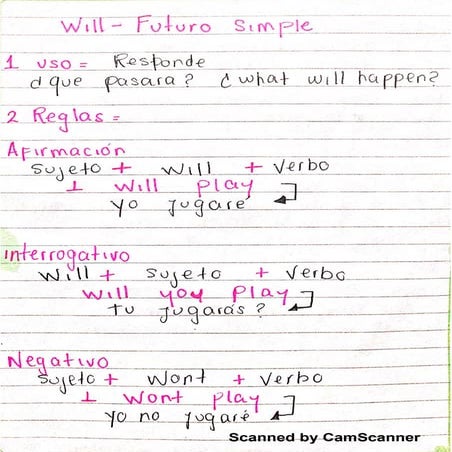 Will - Futuro Simple
1 uso = Responde
d que pasara? ¿ what will happen?
2 Reglas =
Afirmación
Sujeto + will + verbo
I will play
yo jugaré
interrogativo
Will + sujeto + verbo
will you play
Tu jugarás?
Negativo
Sujeto + Wont + verbo
I Wont play
yo no jugaré
Scanned by CamScanner